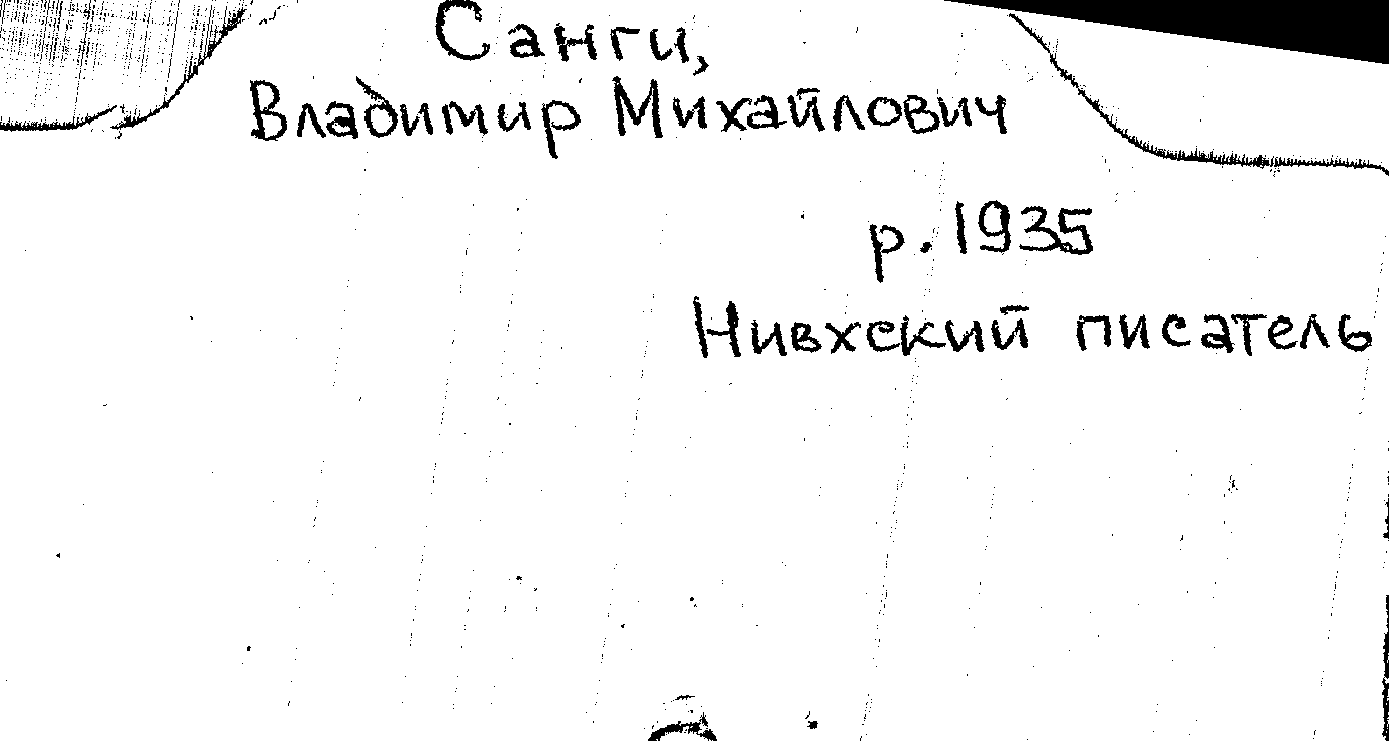 Санги,
Владимир Михайлович
р. 1935
Нивхский писатель